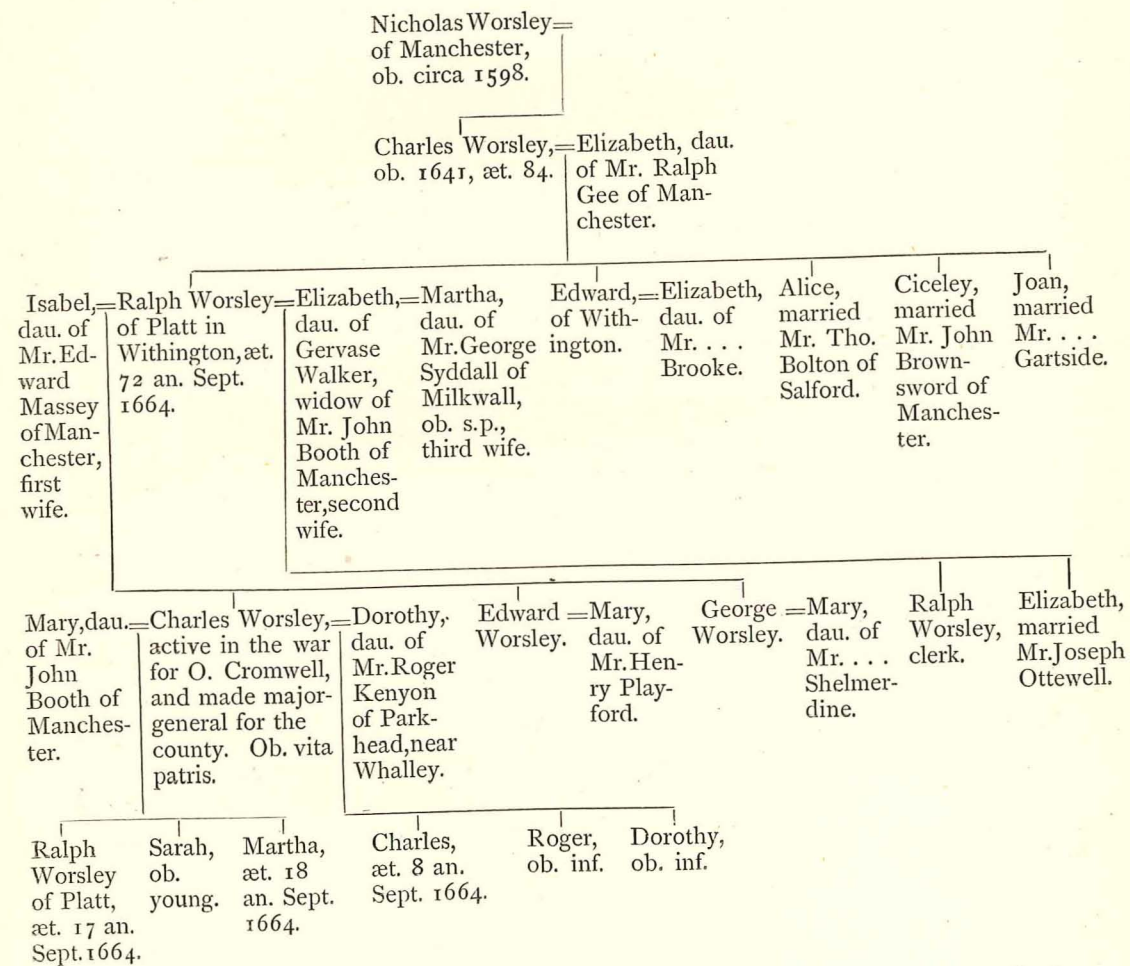 Nicholas Worsley=
of Manchester,
ob. circa 1598.
Charles Worsley,=
ob. 1641, æt. 84.
Elizabeth, dau.
of Mr. Ralph
Gee of Man-
chester.
Isabel,=
dau. of
Mr. Ed-
ward
Massey
of Man-
chester,
first
wife.
Ralph Worsley=
of Platt in
Withington, æt.
72 an. Sept.
1664.
Elizabeth,=
dau. of
Gervase
Walker,
widow of
Mr. John
Booth of
Manches-
ter, second
wife.
Martha,
dau. of
Mr. George
Syddall of
Milkwall,
ob. s.p.,
third wife.
Edward,=
of With-
ington.
Elizabeth,
dau. of
Mr. . . .
Brooke.
Alice,
married
Mr. Tho.
Bolton of
Salford.
Ciceley,
married
Mr. John
Brown-
sword of
Manches-
ter.
Joan,
married
Mr. . . .
Gartside.
Mary, dau.=
of Mr.
John
Booth of
Manches-
ter.
Charles Worsley,=
active in the war
for O. Cromwell,
and made major-
general for the
county. Ob. vita
patris.
Dorothy,
dau. of
Mr. Roger
Kenyon
of Park-
head, near
Whalley.
Edward =
Worsley.
Mary,
dau. of
Mr. Hen-
ry Play-
ford.
George =
Worsley.
Mary,
dau. of
Mr. . . .
Shelmer-
dine.
Ralph
Worsley,
clerk.
Elizabeth,
married
Mr. Joseph
Ottewell.
Ralph
Worsley
of Platt,
æt. 17 an.
Sept. 1664.
Sarah,
ob.
young.
Martha,
æt. 18
an. Sept.
1664.
Charles,
æt. 8 an.
Sept. 1664.
Roger,
ob. inf.
Dorothy,
ob. inf.